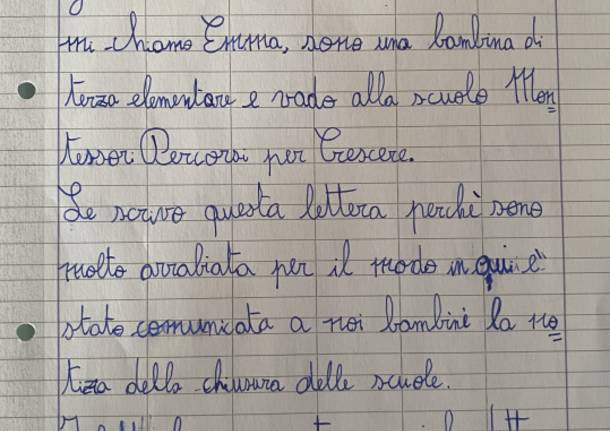 mi chiamo Emma, sono una bambina di
terza elementare e vado alla scuola Mon=
tessori Percorsi per Crescere.
Le scrivo questa lettera perchè sono
molto arrabiata per il modo in qui è
stato comunicata a noi bambini la no=
tizia della chiusura delle scuole.